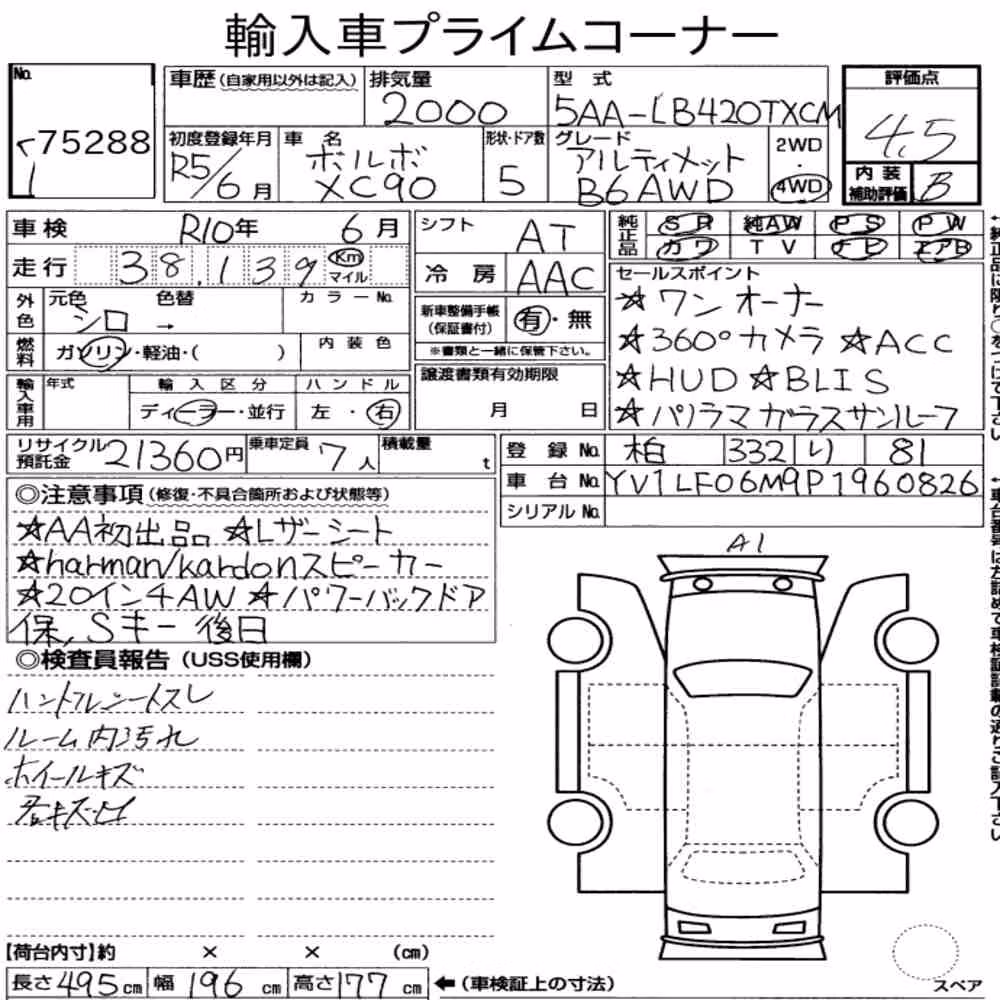 輸入車プライムコーナー
No.
75288
車歴(自家用以外は記入)
排気量
2000
型式
5AA-LB420TXCM
初度登録年月
R5/6月
車名
ボルボ
XC90
形状・ドア数
5
グレード
アルティメット
B6AWD
2WD
・
4WD
評価点
4.5
内装
補助評価
B
車検 R10年 6月
走行 38,139 Km
マイル
外色
元色
シロ
色替
→
カラーNo.
燃料
ガソリン・軽油・( )
内装色
輸入車用
年式
輸入区分
ディーラー・並行
ハンドル
左・右
シフト AT
冷房 AAC
新車整備手帳
(保証書付)
有・無
※書類と一緒に保管下さい。
譲渡書類有効期限
月 日
純正品
SR 純AW PS PW
カワ TV ナビ エアB
セールスポイント
☆ワンオーナー
☆360°カメラ ☆ACC
☆HUD ☆BLIS
☆パノラマガラスサンルーフ
リサイクル
預託金
21360円
乗車定員 7人
積載量 t
登録No. 柏 332 り 81
車台No. YV1LF06M9P1960826
シリアルNo.
◎注意事項(修復・不具合箇所および状態等)
☆AA初出品 ☆Lザーシート
☆harman/kardonスピーカー
☆20インチAW ☆パワーバックドア
保,Sキー後日
◎検査員報告(USS使用欄)
ルーム内汚れ
ホイールキズ
A1
【荷台内寸】約 × × (cm)
長さ495cm 幅196cm 高さ177cm
←(車検証上の寸法)
スペア